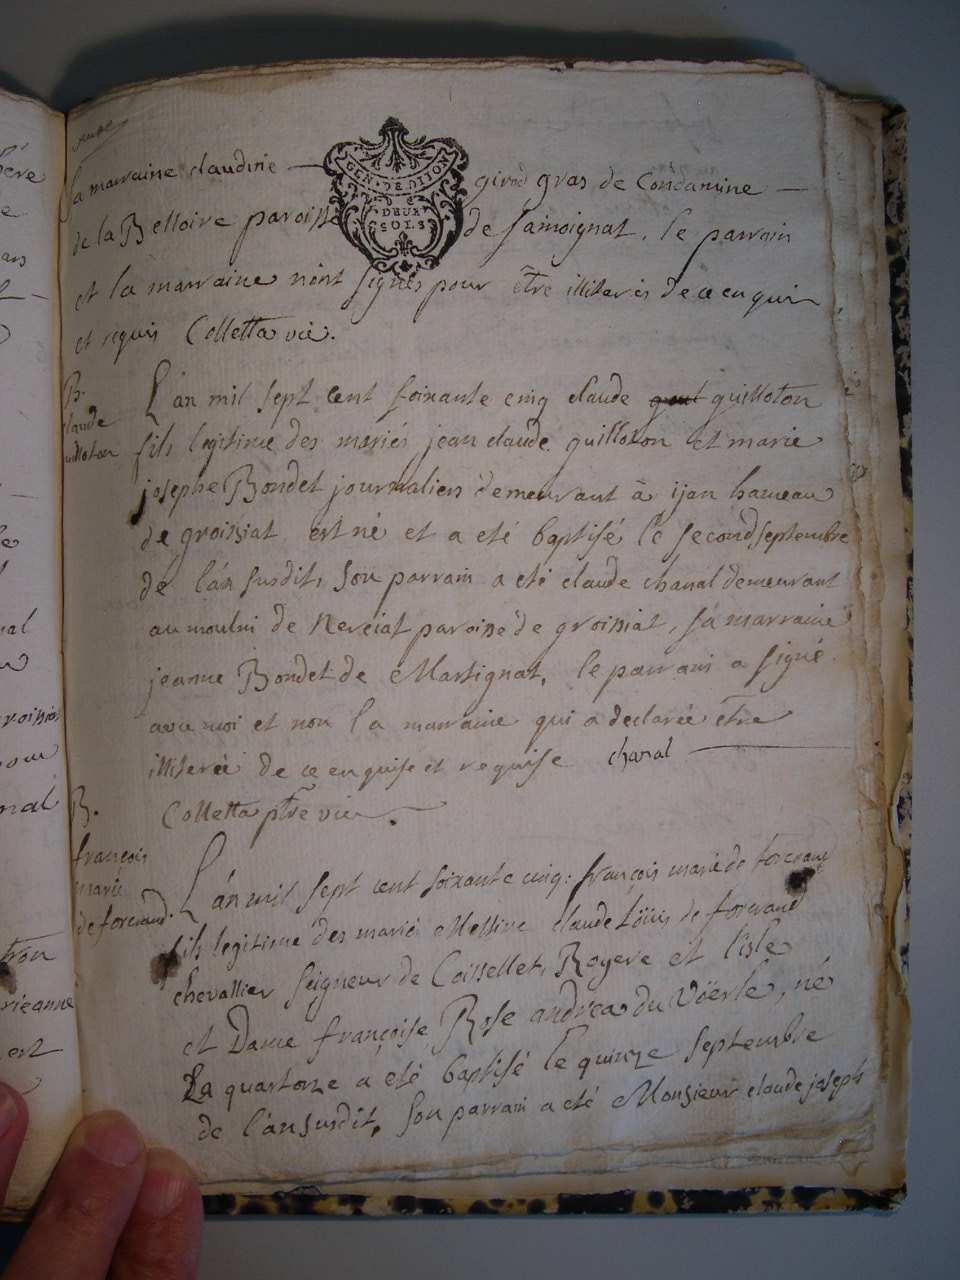 sa marraine claudine — girod gras de Condamine —
GEN · DE DIJON
DEUX
SOLS
de la Belloire paroisse de samoignat, le parrain
et la marraine n'ont signés pour être illiterés de ce enquis
et requis Colletta vic.
B.
claude
uilloton
L'an mil sept cent soixante cinq claude guilloton
fils legitime des mariés jean claude guilloton et marie
josephe Bondet journaliers demeurant à ijan hameau
de groissiat est né et a eté baptisé le second septembre
de l'an susdit, son parrain a eté claude chanal demeurant
au moulin de Nerciat paroisse de groissiat, sa marraine
jeanne Bondet de Martignat, le parrain a signé
avec moi et non la marraine qui a declarée être
illiterée de ce enquise et requise chanal
Colletta ptre vic.
B.
françois
marie
de forcrand.
L'an mil sept cent soixante cinq: françois marie de forcrand
fils legitime des mariés Messire claude Loüis de forcrand
chevallier seigneur de Coisselet, Royere et l'isle
et Dame françoise Rose andrea du Vöerle, né
Le quatorze a eté baptisé le quinze septembre
de l'an susdit, son parrain a eté Monsieur claude joseph